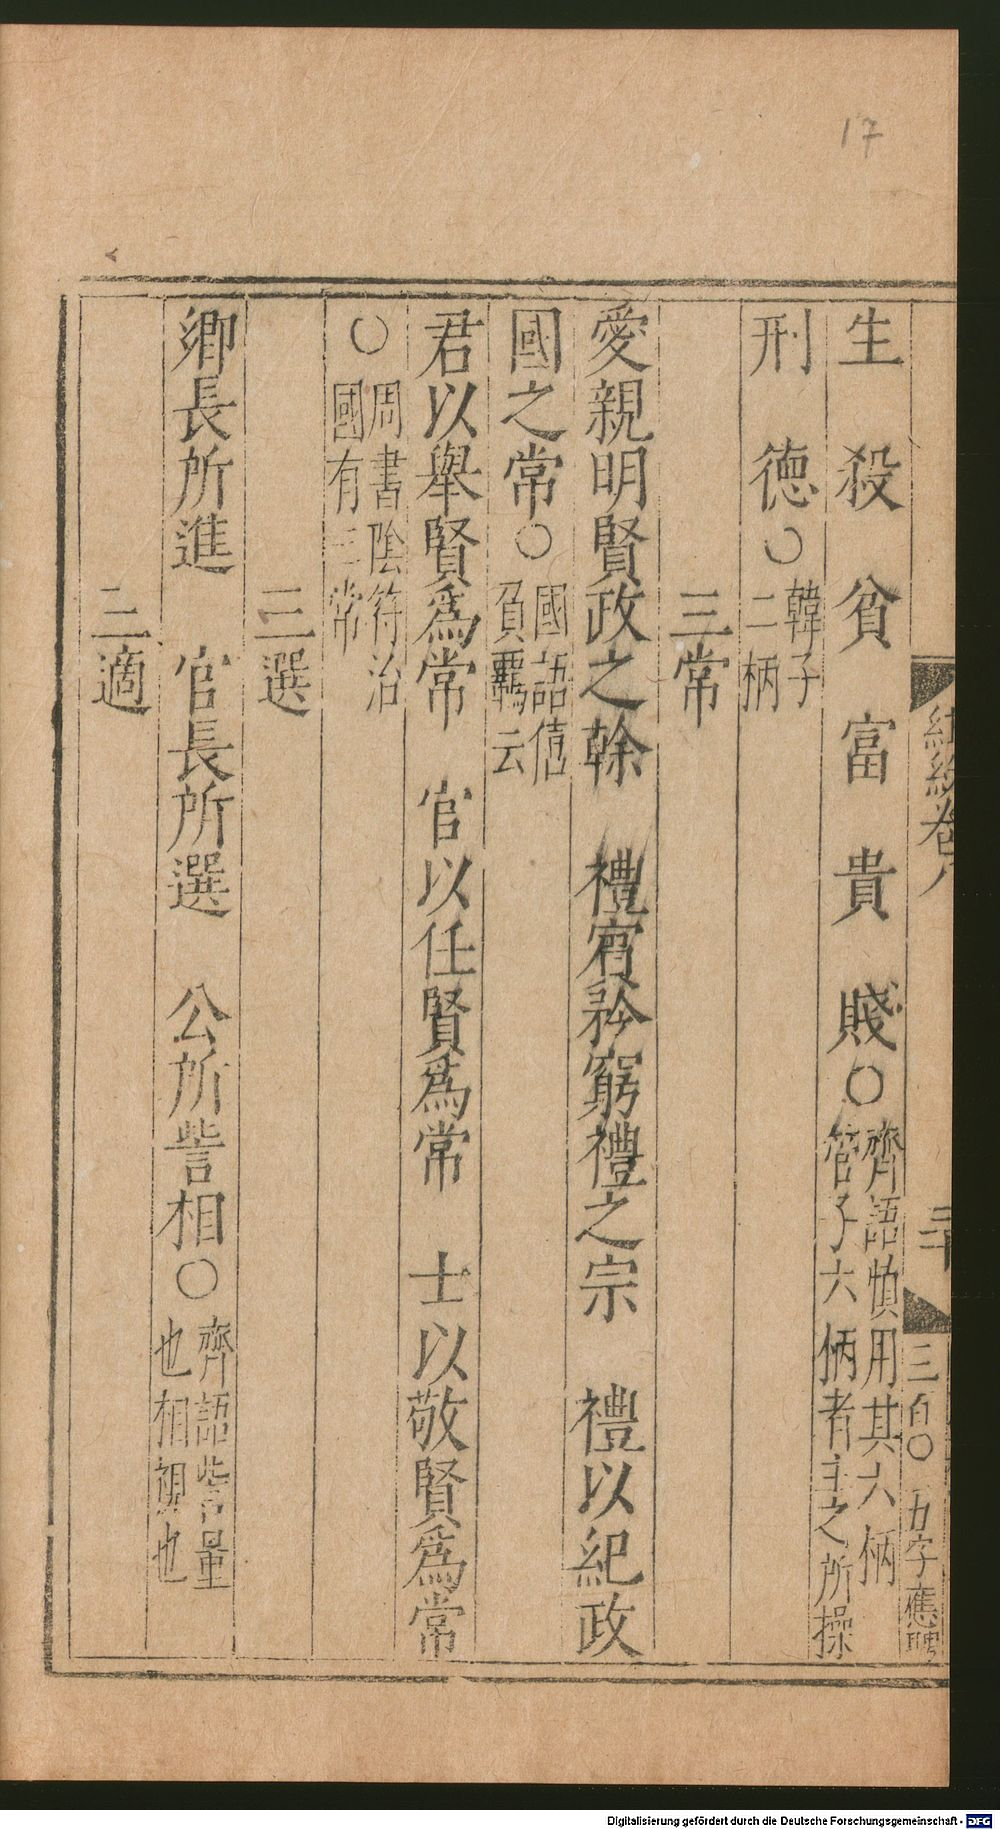 17
生 殺 貧 富 貴 賤○齊語慎用其六柄
管子六柄者主之所操
刑 德○韓子
二柄
三常
愛親明賢政之榦 禮賓矜窮禮之宗 禮以紀政
國之常○國語僖
負羈云
君以舉賢爲常 官以任賢爲常 士以敬賢爲常
○周書陰符治
國有三常
三選
卿長所進 官長所選 公所訾相○齊語訾量
也相視也
三適
卷八
三百〇五字應聘
Digitalisierung gefördert durch die Deutsche Forschungsgemeinschaft - DFG